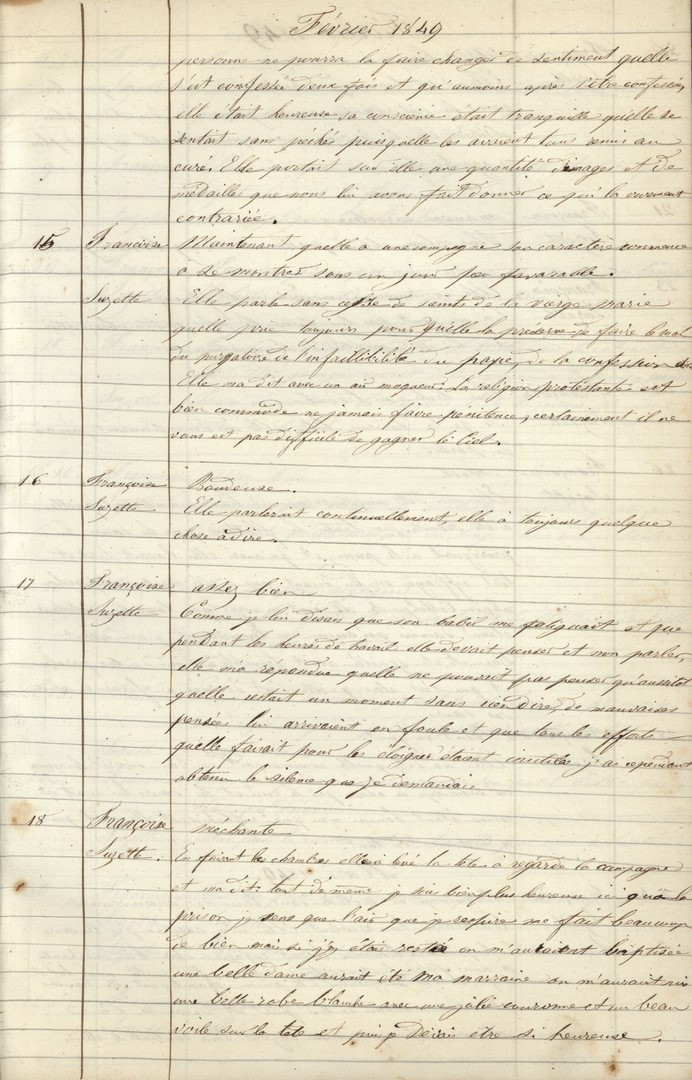 Février 1849
personne ne pourra la faire changer de sentiment quelle
s'est confessée deux fois et qu'aumoins après s'être confessée,
elle était heureuse sa conscience était tranquille quelle se
sentait sans péchés puisquelle les avaient tous remis au
curé. Elle portait sur elle une quantité d'images et de
médailles que nous lui avons fait donner ce qui la vivement
contrariée.
15 Francoise Maintenant quelle a une compagne son caractère commence
à se montrer sous un jour peu favorable.
Suzette Elle parle sans cesse de saints de la vierge marie
quelle prie toujours pour quelle la préserve de faire le mal
du purgatoire de l'infaillibilité du pape, de la confession etc.
Elle ma dit avec un air moqueur: La religion protestante est
bien commode ne jamais faire penitence, certainement il ne
vous est pas difficile de gagner le Ciel.
16 Françoise Boudeuse.
Suzette Elle parlerait continuellement, elle à toujours quelque
chose à dire.
17 Françoise assez bien
Suzette Comme je lui disais que son babil me fatiguait et que
pendant les heures de travail elle devait penser et non parler,
elle m'a répondue quelle ne pouvait pas penser qu'aussitot
quelle restait un moment sans rien dire, de mauvaises
pensées lui arrivaient en foule et que tous les efforts
quelle faisait pour les éloigner étaient inutiles j'ai cependant
obtenu le silence que je demandais
18 Françoise méchante
Suzette. En faisant les chambres elle a levé la tête à regardé la campagne
et ma dit: tout de meme je suis bien plus heureuse ici qu'à la
prison je sens que l'air que je respire me fait beaucoup
de bien mais si j'y étais restée on m'auraient baptisée
une belle dame aurait été ma marraine on m'aurait mis
une belle robe blanche avec une jolie couronne et un beau
voile sur la tete et puis je devais être si heureuse.